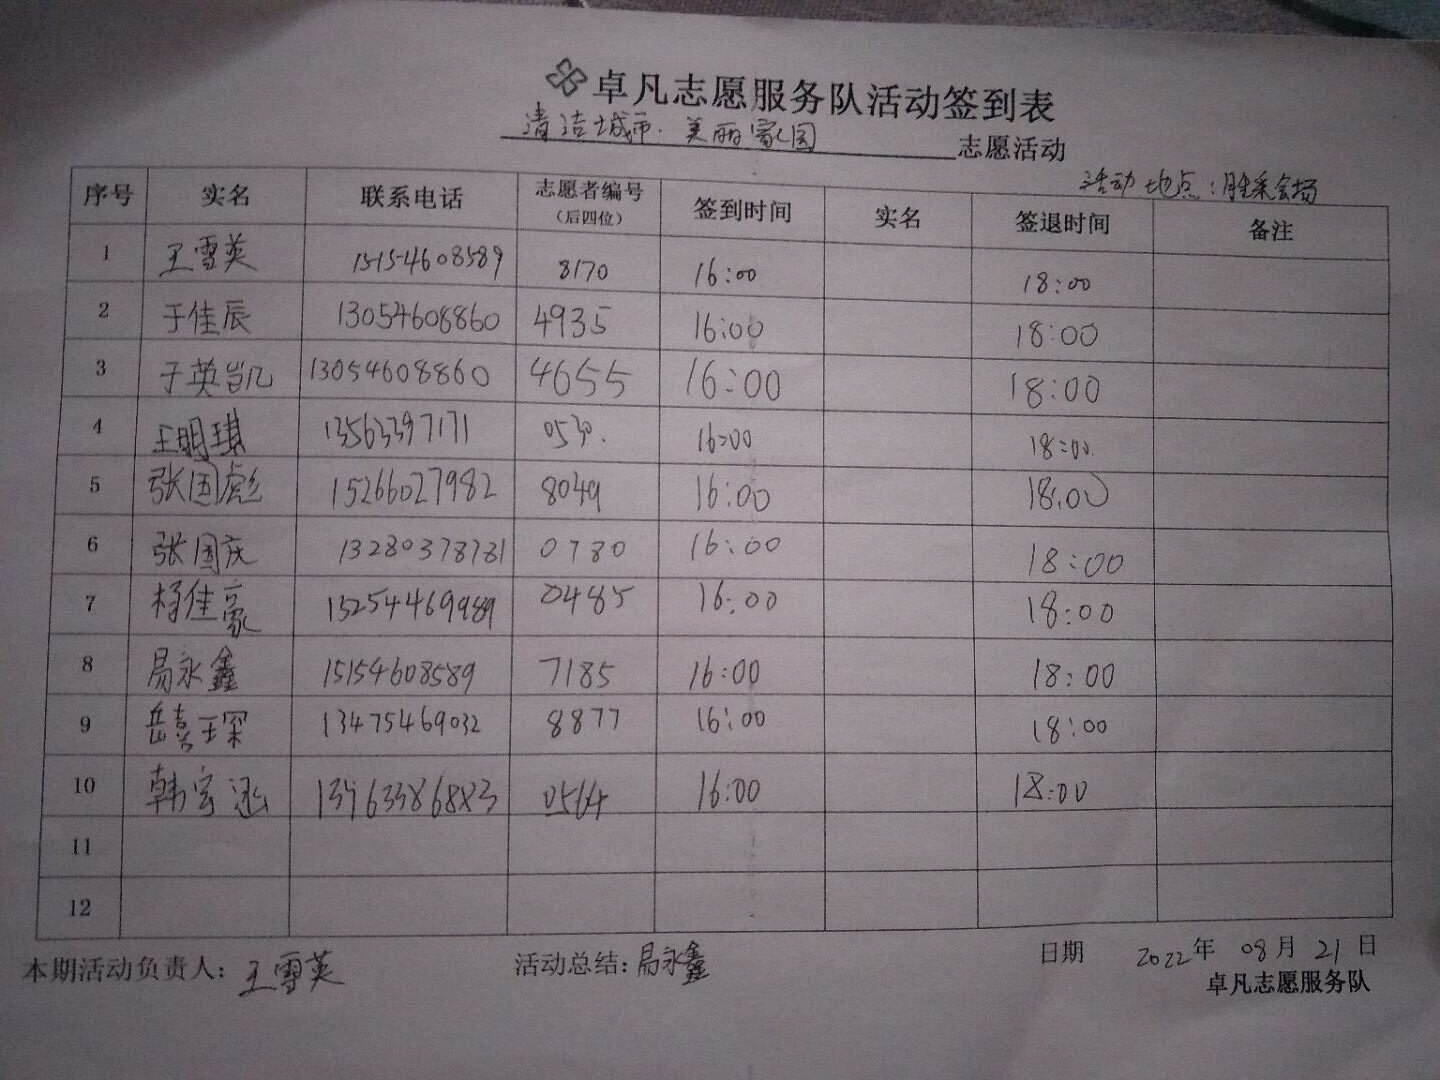 卓凡志愿服务队活动签到表
清洁城市·美丽家园 志愿活动
活动地点:胜采会场
序号 实名 联系电话 志愿者编号(后四位) 签到时间 实名 签退时间 备注
1 王雪英 15154608589 8170 16:00 18:00
2 于佳辰 13054608860 4935 16:00 18:00
3 于英凯 13054608860 4655 16:00 18:00
4 王明琪 13563397171 0530. 16:00 18:00
5 张国彪 15266027982 8049 16:00 18:00
6 张国庆 13280378781 0780 16:00 18:00
7 杨佳豪 13254469989 0485 16:00 18:00
8 局永鑫 15154608589 7185 16:00 18:00
9 岳嘉琛 13475469032 8877 16:00 18:00
10 韩宏 0564 16:00 18:00
11
12
本期活动负责人:王雪英 活动总结:局永鑫 日期 2022年 08月 21日
卓凡志愿服务队